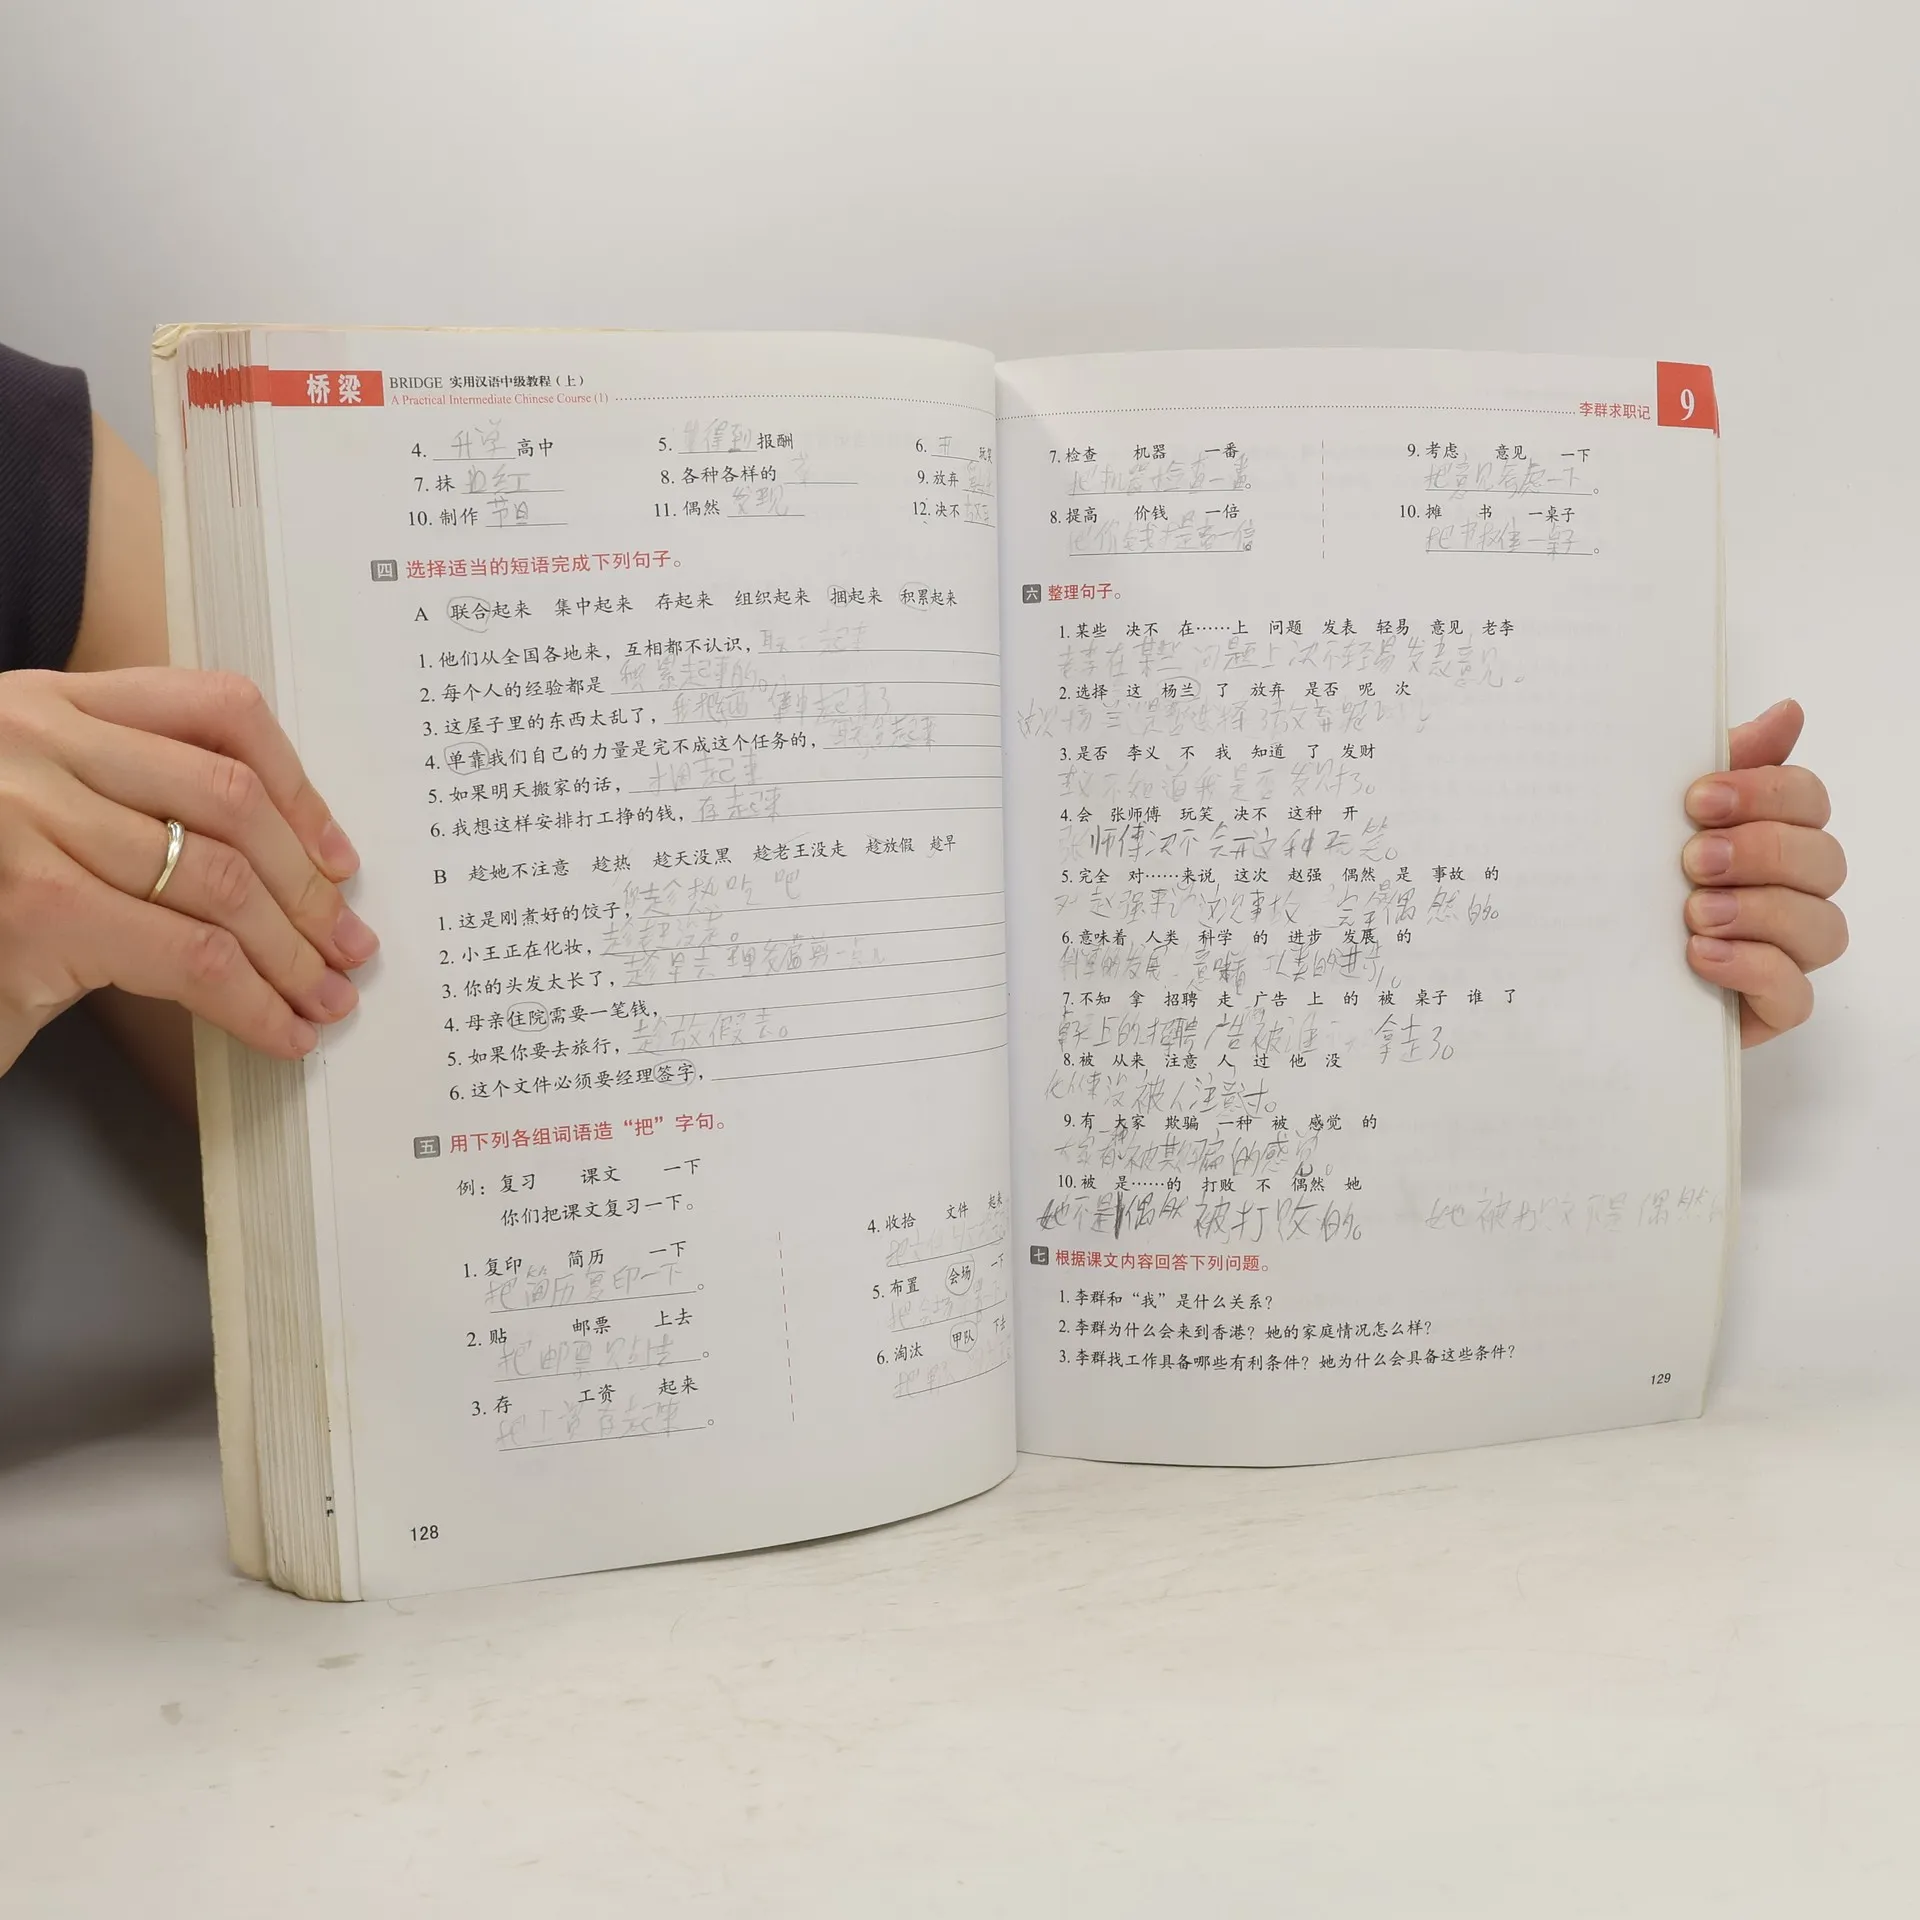 桥梁 BRIDGE 实用汉语中级教程（上）
A Practical Intermediate Chinese Course (1)
4. 升学 高中 5. 得到 报酬 6. 开 玩笑
7. 抹 口红 8. 各种各样的 9. 放弃
10. 制作 节目 11. 偶然 发现 12. 决不
四 选择适当的短语完成下列句子。
A 联合起来 集中起来 存起来 组织起来 捆起来 积累起来
1. 他们从全国各地来，互相都不认识， 起来
2. 每个人的经验都是 积累起来的。
3. 这屋子里的东西太乱了， 集中起来了
4. 单靠我们自己的力量是完不成这个任务的， 联合起来
5. 如果明天搬家的话， 捆起来
6. 我想这样安排打工挣的钱， 存起来
B 趁她不注意 趁热 趁天没黑 趁老王没走 趁放假 趁早
1. 这是刚煮好的饺子， 你趁热吃吧
2. 小王正在化妆，
3. 你的头发太长了， 趁早去理发店剪一点儿
4. 母亲住院需要一笔钱，
5. 如果你要去旅行， 趁放假去。
6. 这个文件必须要经理签字，
五 用下列各组词语造“把”字句。
例：复习 课文 一下
你们把课文复习一下。
1. 复印 简历 一下
把简历复印一下。
2. 贴 邮票 上去
把邮票贴上去。
3. 存 工资 起来
把工资存起来。
4. 收拾 文件 起来
5. 布置 会场 一下
6. 淘汰 甲队 下去
128
李群求职记 9
7. 检查 机器 一番
把机器检查一番。
8. 提高 价钱 一倍
把价钱提高一倍。
9. 考虑 意见 一下
把意见考虑一下。
10. 摊 书 一桌子
把书摊 一桌子。
六 整理句子。
1. 某些 决不 在……上 问题 发表 轻易 意见 老李
老李在某些问题上决不轻易发表意见。
2. 选择 这 杨兰 了 放弃 是否 呢 次
这次杨兰是否选择了放弃呢？
3. 是否 李义 不 我 知道 了 发财
李义不知道我是否发财了。
4. 会 张师傅 玩笑 决不 这种 开
张师傅决不会开这种玩笑。
5. 完全 对……来说 这次 赵强 偶然 是 事故 的
对赵强来说这次事故完全是偶然的。
6. 意味着 人类 科学 的 进步 发展 的
科学的发展意味着人类的进步。
7. 不知 拿 招聘 走 广告 上 的 被 桌子 谁 了
桌子上的招聘广告被谁 拿走了。
8. 被 从来 注意 人 过 他 没
他从来没被人注意过。
9. 有 大家 欺骗 一种 被 感觉 的
大家有一种被欺骗的感觉。
10. 被 是……的 打败 不 偶然 她
她不是偶然被打败的。 她被打败不是偶然
七 根据课文内容回答下列问题。
1. 李群和“我”是什么关系？
2. 李群为什么会来到香港？她的家庭情况怎么样？
3. 李群找工作具备哪些有利条件？她为什么会具备这些条件？
129